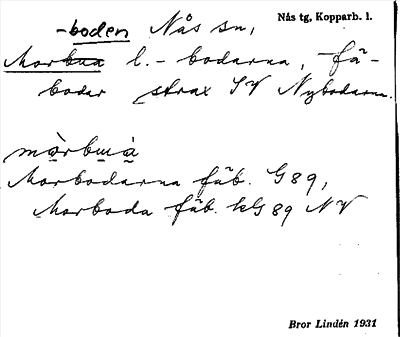 -boden Nås sn, Nås tg, Kopparb. l.
Morbua l. -bodarna, fä-
bodar strax SV Nybodarna.
mòrbuà
Morbodarna fäb. G89,
Morboda fäb. kG 89 NV
Bror Lindén 1931